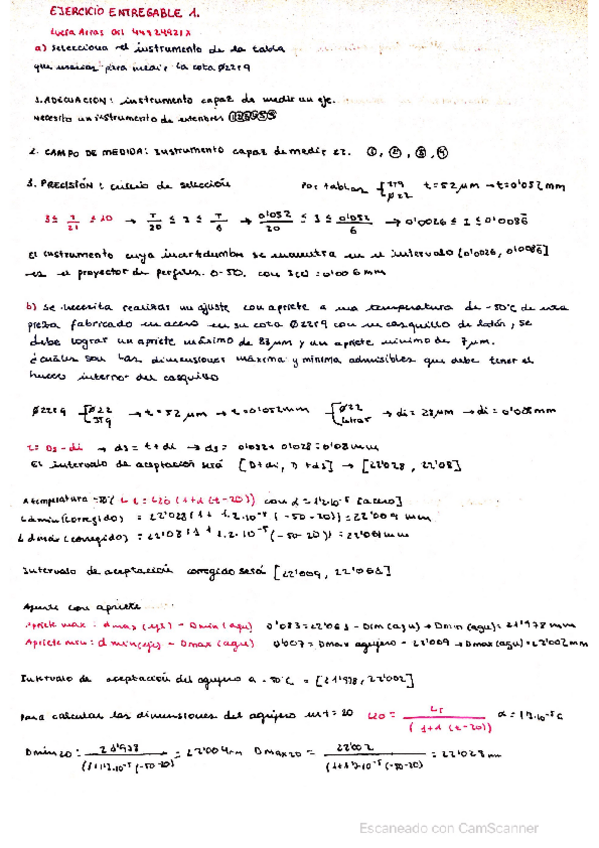 EJERCICIO ENTREGABLE 1.
Lucía Arias Gil
a) Selecciona el instrumento de la tabla
que usarías para medir la cota Ø22r9
1. ADECUACION: instrumento capaz de medir un eje.
Necesito un instrumento de exteriores
2. CAMPO DE MEDIDA: Instrumento capaz de medir 22. ①, ②, ③, ④
3. PRECISIÓN: criterio de selección Por tablas { IT9 Ø22 t=52 μm → t=0'052 mm
3 ≤ T/2I ≤ 10 → T/20 ≤ I ≤ T/6 → 0'052/20 ≤ I ≤ 0'052/6 → 0'0026 ≤ I ≤ 0'0086
El instrumento cuya incertidumbre se encuentra en el intervalo [0'0026, 0'0086]
es el proyector de perfiles. 0-50. con I(2) = 0'006 mm
b) Se necesita realizar un ajuste con apriete a una temperatura de -50°C de una
pieza fabricado en acero en su cota Ø22r9 con un casquillo de latón, se
debe lograr un apriete máximo de 83μm y un apriete mínimo de 7 μm.
¿cuáles son las dimensiones máxima y mínima admisibles que debe tener el
hueco interno del casquillo
Ø22r9 { Ø22 IT9 → t=52 μm → t=0'052mm { Ø22 letra r → di=28μm → di=0'028mm
t = ds - di → ds = t + di → ds = 0'052 + 0'028 = 0'08mm
El intervalo de aceptación será [D+di, D+ds] → [22'028, 22'08]
A temperatura -50°C Lt = L20 (1+α(t-20)) con α=1'2·10⁻⁵ [acero]
Ldmin (corregido) = 22'028 (1 + 1.2·10⁻⁵ (-50-20)) = 22'009 mm
Ldmáx (corregido) = 22'08 (1 + 1.2·10⁻⁵ (-50-20)) = 22'061 mm
Intervalo de aceptación corregido será [22'009, 22'061]
Ajuste con apriete
Apriete max: dmax (eje) - Dmin (aguj) 0'083=22'061 - Dim (aguj) → Dmin (aguj) = 21'978 mm
Apriete min: dmin (eje) - Dmax (aguj) 0'007 = Dmax agujero - 22'009 → Dmax (aguj) = 22'002 mm
Intervalo de aceptación del agujero a -50°C = [21'978, 22'002]
Para calcular las dimensiones del agujero en t=20 L20 = Lt / (1+α(t-20))
Dmin20 = 21'978 / = 22'004 mm Dmax20 = 22'002 / = 22'028 mm
Escaneado con CamScanner